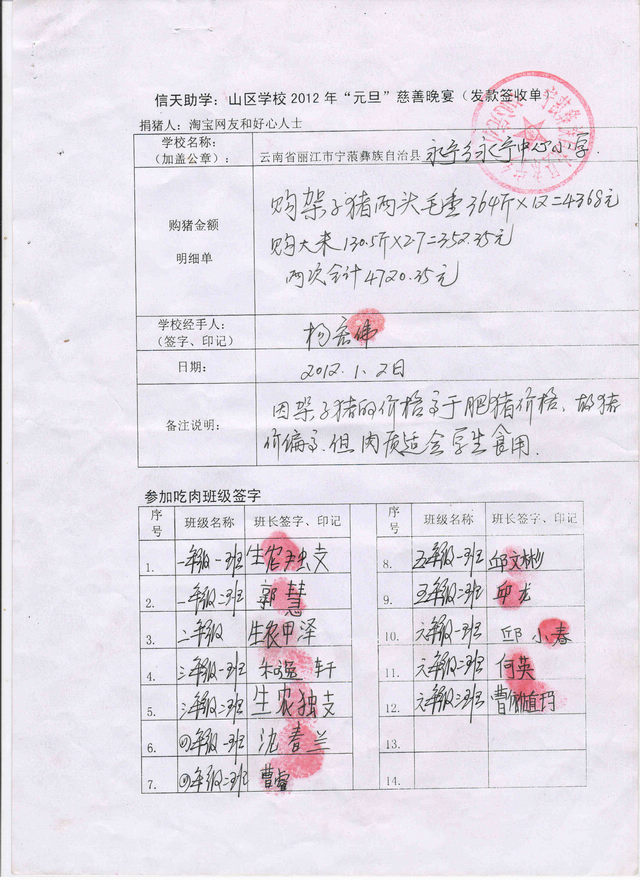 信天助学：山区学校2012年“元旦”慈善晚宴（发款签收单）
捐猪人：淘宝网友和好心人士
学校名称：
（加盖公章）：
云南省丽江市宁蒗彝族自治县 永宁乡永宁中心小学
购猪金额
明细单
购架子猪两头毛重364斤×12=4368元
购大米130.5斤×2.7=352.35元
两次合计4720.35元
学校经手人：
（签字、印记）
杨宏伟
日期：
2012.1.2日
备注说明：
因架子猪的价格高于肥猪价格，故猪
价偏高.但肉质适合学生食用.
参加吃肉班级签字
序号 班级名称 班长签字、印记
1. 一年级一班 生农独支
2. 一年级二班 郭慧
3. 二年级 生农甲泽
4. 三年级一班 朱逸轩
5. 三年级二班 生农独支
6. 四年级一班 沈春兰
7. 四年级二班 曹睿
序号 班级名称 班长签字、印记
8. 五年级一班 邱文彬
9. 五年级二班 邱龙
10. 六年级一班 邱小春
11. 六年级二班 何英
12. 六年级三班 曹
13.
14.